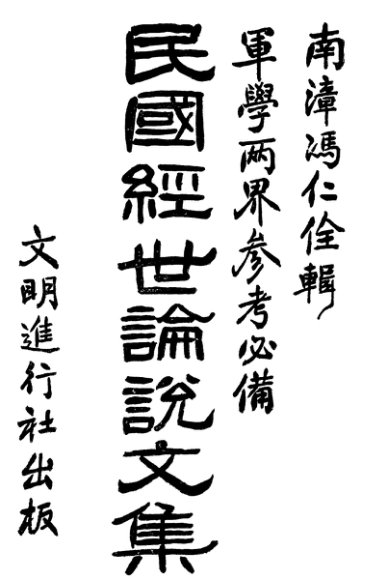 南漳馮仁佺輯
軍學兩界參考必備
民國經世論說文集
文明進行社出版